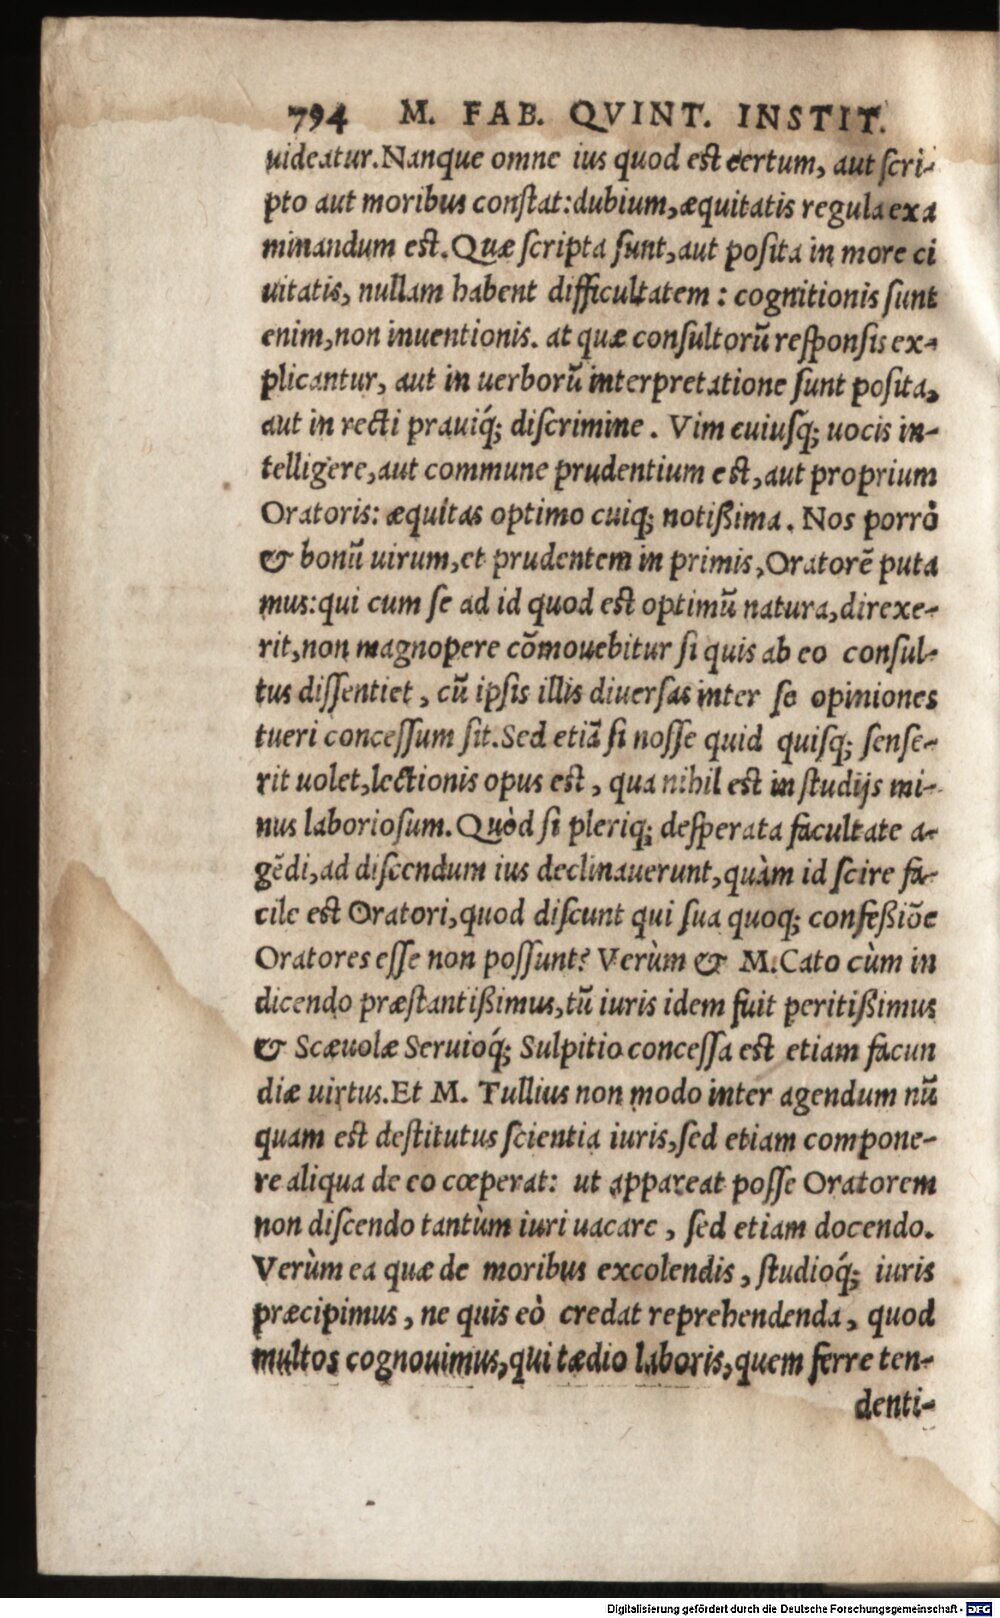 794 M. FAB. QVINT. INSTIT.
uideatur. Nanque omne ius quod est certum, aut scri-
pto aut moribus constat: dubium, æquitatis regula exa
minandum est. Quæ scripta sunt, aut posita in more ci
uitatis, nullam habent difficultatem : cognitionis sunt
enim, non inuentionis. at quæ consultorũ responsis ex-
plicantur, aut in uerborũ interpretatione sunt posita,
aut in recti prauiq́; discrimine. Vim cuiusq́; uocis in-
telligere, aut commune prudentium est, aut proprium
Oratoris: æquitas optimo cuiq; notißima. Nos porrò
& bonũ uirum, et prudentem in primis, Oratorẽ puta
mus: qui cum se ad id quod est optimũ natura, direxe-
rit, non magnopere cõmouebitur si quis ab eo consul-
tus dissentiet, cũ ipsis illis diuersas inter se opiniones
tueri concessum sit. Sed etiã si nosse quid quisq; sense-
rit uolet, lectionis opus est, qua nihil est in studijs mi-
nus laboriosum. Quòd si pleriq; desperata facultate a-
gẽdi, ad discendum ius declinauerunt, quàm id scire fa-
cile est Oratori, quod discunt qui sua quoq; confeßiõe
Oratores esse non possunt? Verùm & M. Cato cùm in
dicendo præstantißimus, tũ iuris idem fuit peritißimus
& Scæuolæ Seruioq́; Sulpitio concessa est etiam facun
diæ uirtus. Et M. Tullius non modo inter agendum nũ
quam est destitutus scientia iuris, sed etiam compone-
re aliqua de eo cœperat: ut appareat posse Oratorem
non discendo tantùm iuri uacare, sed etiam docendo.
Verùm ea quæ de moribus excolendis, studioq́; iuris
præcipimus, ne quis eò credat reprehendenda, quod
multos cognouimus, qui tædio laboris, quem ferre ten-
denti-
Digitalisierung gefördert durch die Deutsche Forschungsgemeinschaft - DFG